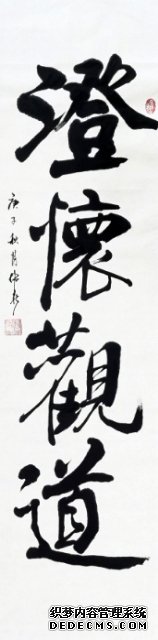 澄懷觀道
庚子秋月
织梦内容管理系统
DEDECMS.COM